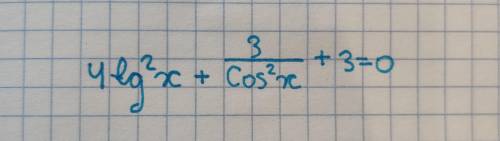 4tg²x + 3/Cos²x + 3=0